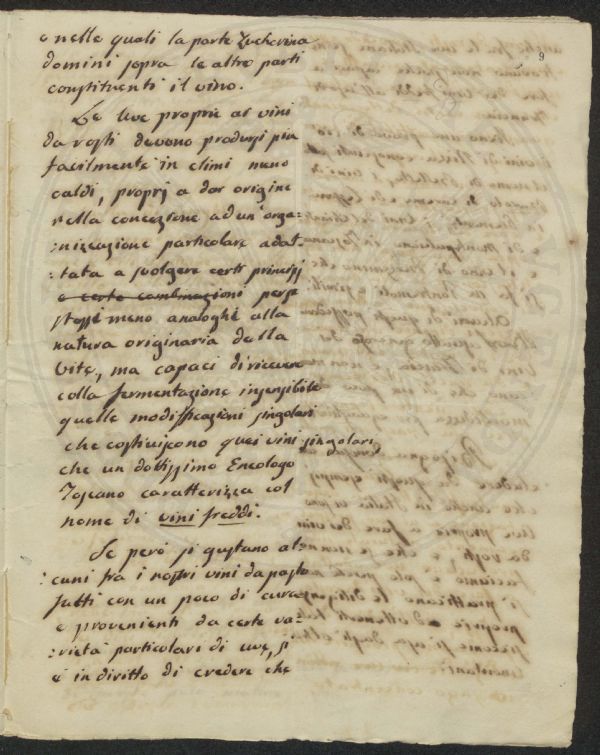 9
e nelle quali la parte zucherina
domini sopra le altre parti
constituenti il vino.
Le uve proprie ai vini
da rosti devono prodursi più
facilmente in climi meno
caldi, proprj a dar origine
nella concezione ad un'orga:
:nizzazione particolare adat:
:tata a svolgere certi principj
e certe combinazioni per se
stessi meno analoghi alla
natura originaria della
Vite, ma capaci di ricevere
colla fermentazione insensibile
quelle modifficazioni singolari
che costiuiscono quei vini singolari
che un dottissimo Enologo
Toscano caratterizza col
nome di vini freddi.
Se però si gustano al:
:cuni fra i nostri vini da pasto
fatti con un poco di cura
e provenienti da certe va:
:rietà particolari di uve, si
è in diritto di credere che